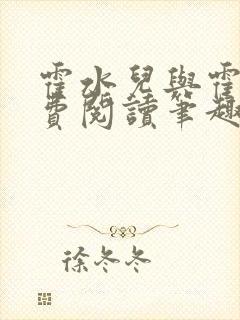 霍水兒與霍
費閱讀筆趣
徐冬冬